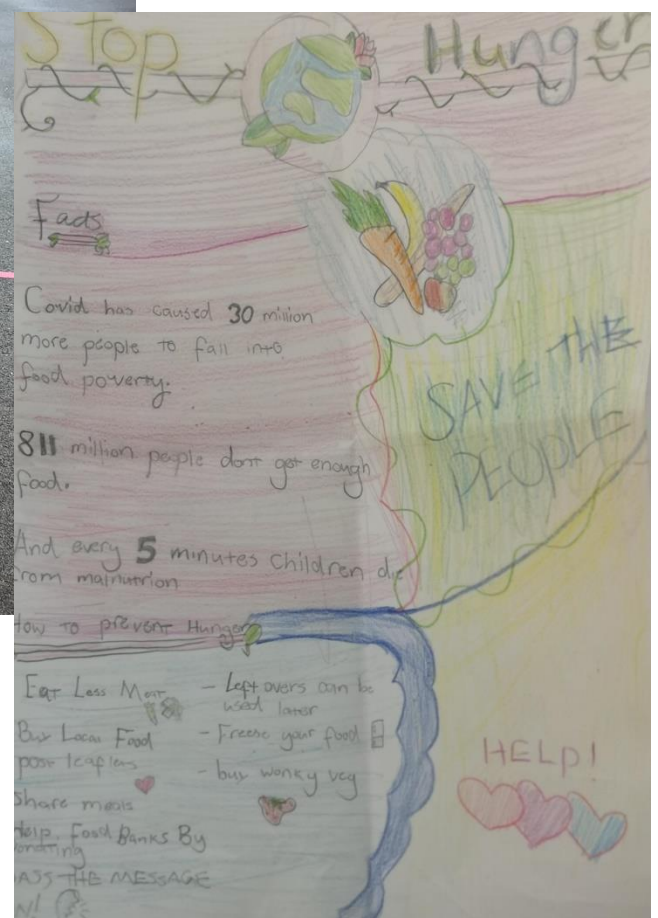 Stop Hunger
Facts
Covid has caused 30 million
more people to fall into
food poverty.
811 million people dont get enough
food.
And every 5 minutes Children die
from malnutrion
How to prevent Hunger
Eat Less Meat
Buy Local Food
post leaflets
share meals
Help Food Banks By
PASS THE MESSAGE
- Left overs can be
used later
- Freeze your food
- buy wonky veg
SAVE THE
PEOPLE
HELP!